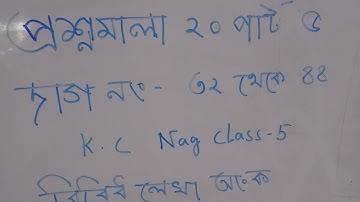 প্রশ্নমালা ২০ পার্ট ৫
দাগ নং- ৩২ থেকে ৪৪
K.C Nag Class-5
বিবিধ লেখা অংক